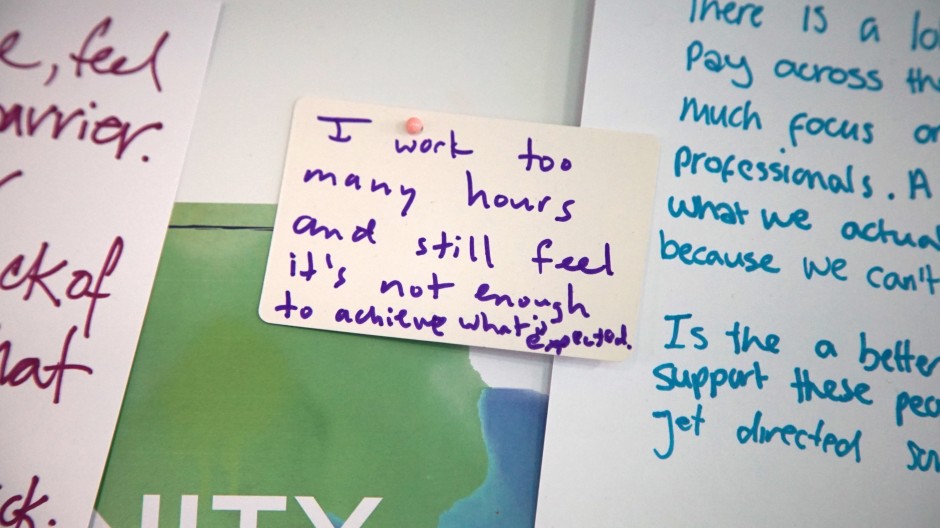 e, feel
arrier.
ck of
hat
ck.
I work too
many hours
and still feel
it's not enough
to achieve what is
expected.
NITY
There is a lo
Pay across th
much focus on
professionals. A
what we actual
because we can't
Is the a better
support these peo
get directed